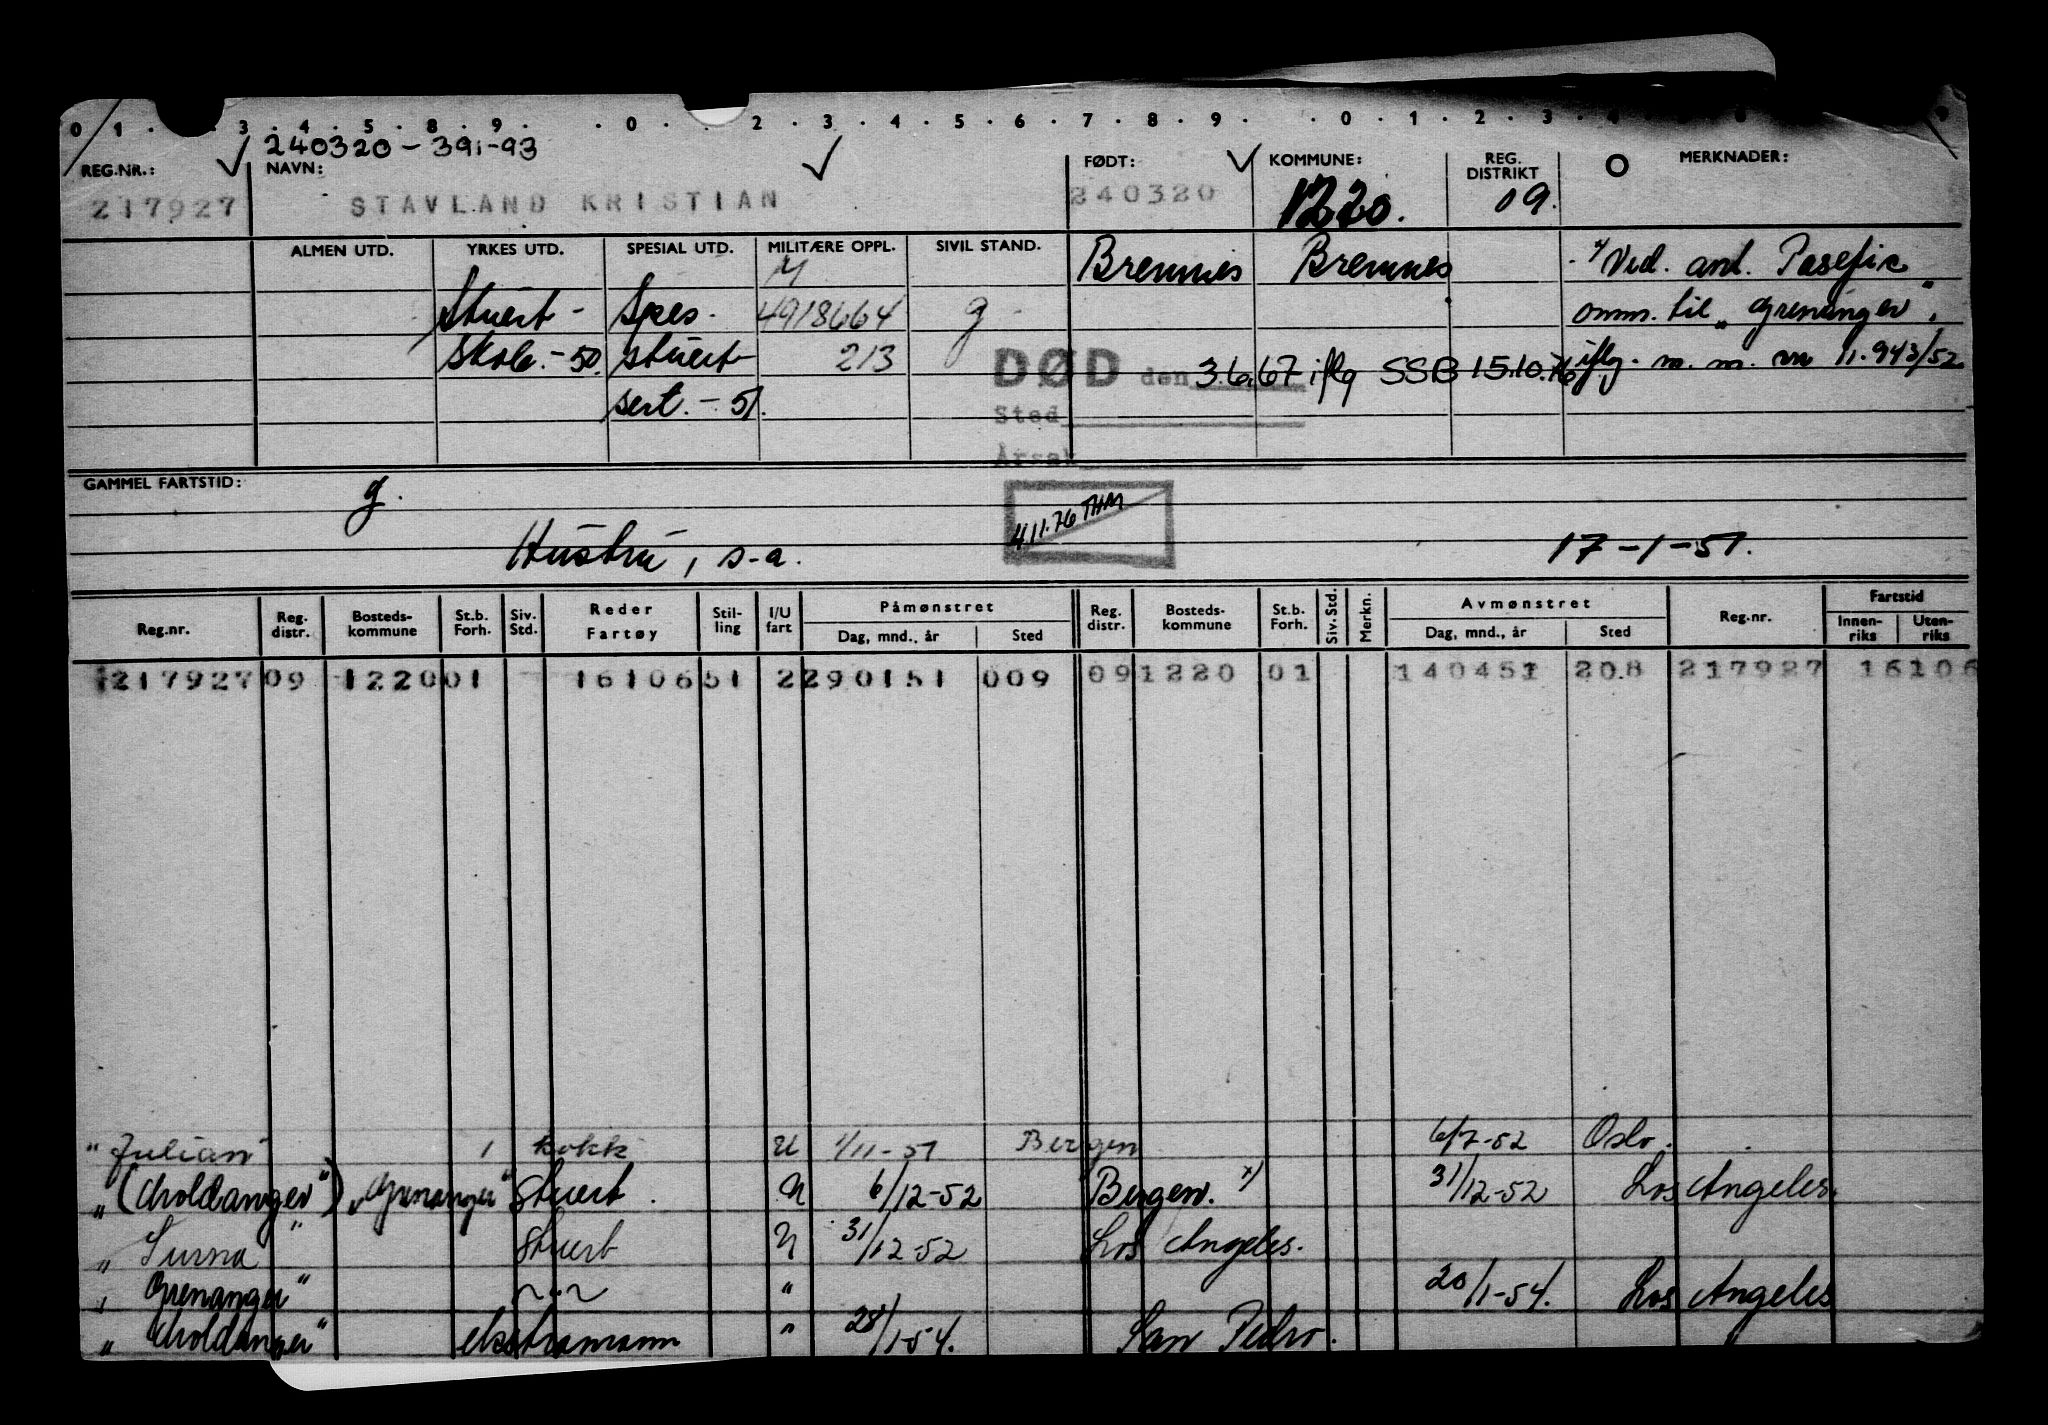 0 1 . 3 . 4 . 5 . 8 . 9 . . 0 . . 2 . 3 . 4 . 5 . 6 . 7 . 8 . 9 . . 0 . 1 . 2 . 3 . 4
240320 - 391-93
REG.NR.: NAVN: FØDT: KOMMUNE: REG. DISTRIKT MERKNADER:
217927 STAVLAND KRISTIAN 240320 1220. 09.
ALMEN UTD. YRKES UTD. SPESIAL UTD. MILITÆRE OPPL. SIVIL STAND. Bremnes Bremnes Ved. ant. Pasefic
Stuert - Spes. 4918664 g omm. til „Grenanger",
skole. -50. stuert 213 DØD den 3.6.67 iflg SSB 15.10.76 iflg. m. m. nr 11.943/52
sert. - 51. Sted
Årsak
GAMMEL FARTSTID: g.
4.11.76 THM
Hustru, s.a. 17-1-51.
Reg.nr. Reg. distr. Bosteds-kommune St.b. Forh. Siv. Std. Reder Fartøy Stil-ling I/U fart Påmønstret Dag, mnd., år Sted Reg. distr. Bosteds-kommune St.b. Forh. Siv. Std. Merkn. Avmønstret Dag, mnd., år Sted Reg.nr. Fartstid Innen-riks Uten-riks
217927 09 1220 01 16106 51 2 290151 009 09 1220 01 140451 208 217927 16106
"Julian" 1 kokk U 1/11-51 Bergen 6/7-52 Oslo.
„(Moldanger") „Grenanger" Stuert. U 6/12-52 Bergen. x) 31/12-52 Los Angeles.
„Surna" Stuert U 31/12-52 Los Angeles.
„Grenanger" —"— " 20/1-54. Los Angeles
„Moldanger" ekstramann " 28/1-54. San Pedro.